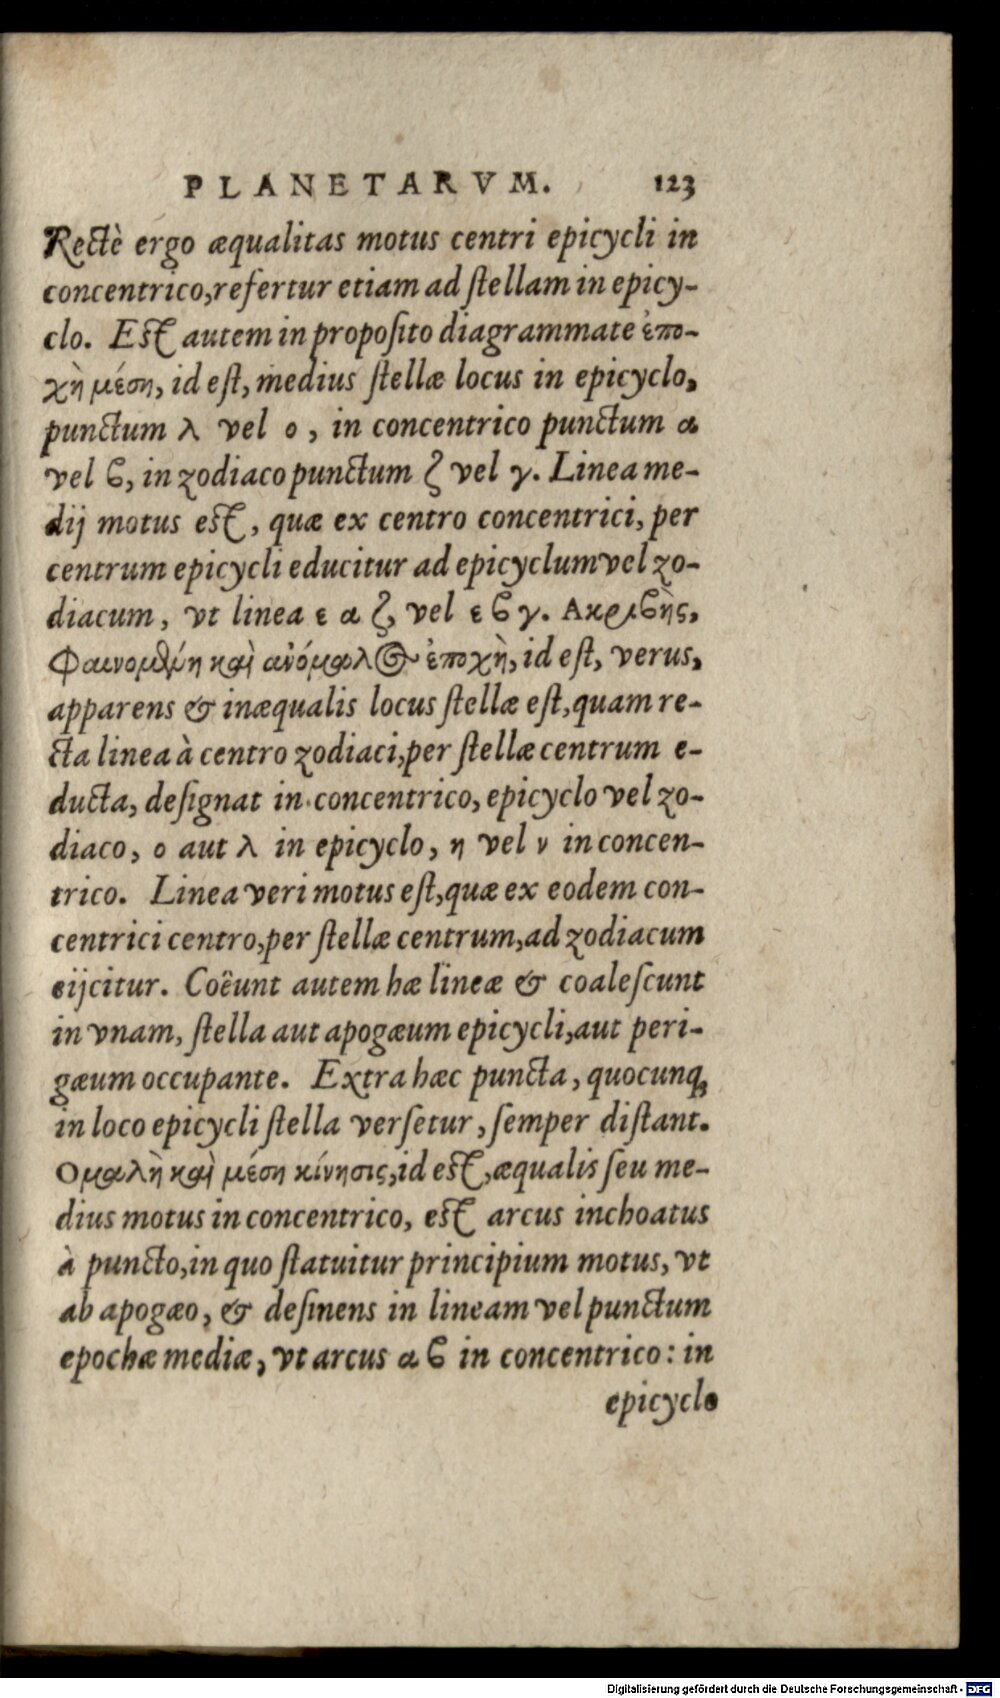 PLANETARVM. 123
Rectè ergo æqualitas motus centri epicycli in
concentrico, refertur etiam ad ſtellam in epicy-
clo. Eſt autem in propoſito diagrammate ἐπο-
χὴ μέση, id eſt, medius ſtellæ locus in epicyclo,
punctum λ vel ο, in concentrico punctum α
vel ϐ, in zodiaco punctum ζ vel γ. Linea me-
dij motus eſt, quæ ex centro concentrici, per
centrum epicycli educitur ad epicyclum vel zo-
diacum, vt linea ε α ζ, vel ε ϐ γ. Ακριϐὴς,
Φαινομθύη καὶ ανόμαλος ἐποχὴ, id eſt, verus,
apparens & inæqualis locus ſtellæ eſt, quam re-
cta linea à centro zodiaci, per ſtellæ centrum e-
ducta, deſignat in concentrico, epicyclo vel zo-
diaco, ο aut λ in epicyclo, η vel ν in concen-
trico. Linea veri motus eſt, quæ ex eodem con-
centrici centro, per ſtellæ centrum, ad zodiacum
eijcitur. Coëunt autem hæ lineæ & coaleſcunt
in vnam, ſtella aut apogæum epicycli, aut peri-
gæum occupante. Extra hæc puncta, quocunq;
in loco epicycli ſtella verſetur, ſemper diſtant.
Ομαλὴ καὶ μέση κίνησις, id eſt, æqualis ſeu me-
dius motus in concentrico, eſt arcus inchoatus
à puncto, in quo ſtatuitur principium motus, vt
ab apogæo, & deſinens in lineam vel punctum
epochæ mediæ, vt arcus α ϐ in concentrico: in
epicyclo
Digitalisierung gefördert durch die Deutsche Forschungsgemeinschaft - DFG